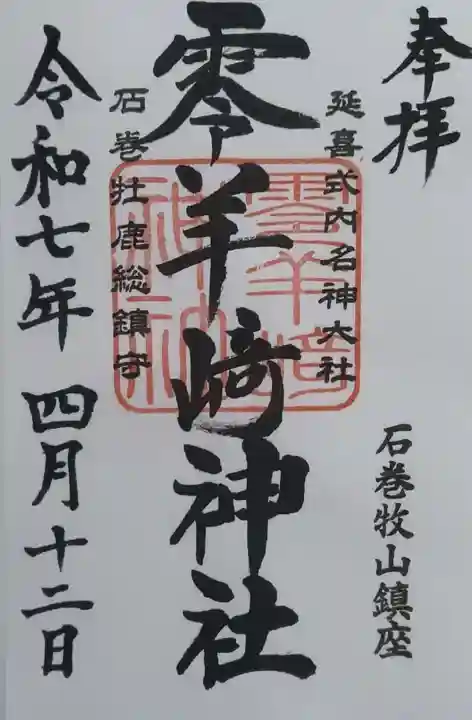 奉拝
石巻牧山鎮座
延喜式内名神大社
零羊﨑神社
石巻牡鹿総鎮守
令和七年 四月十二日
零羊崎
神社